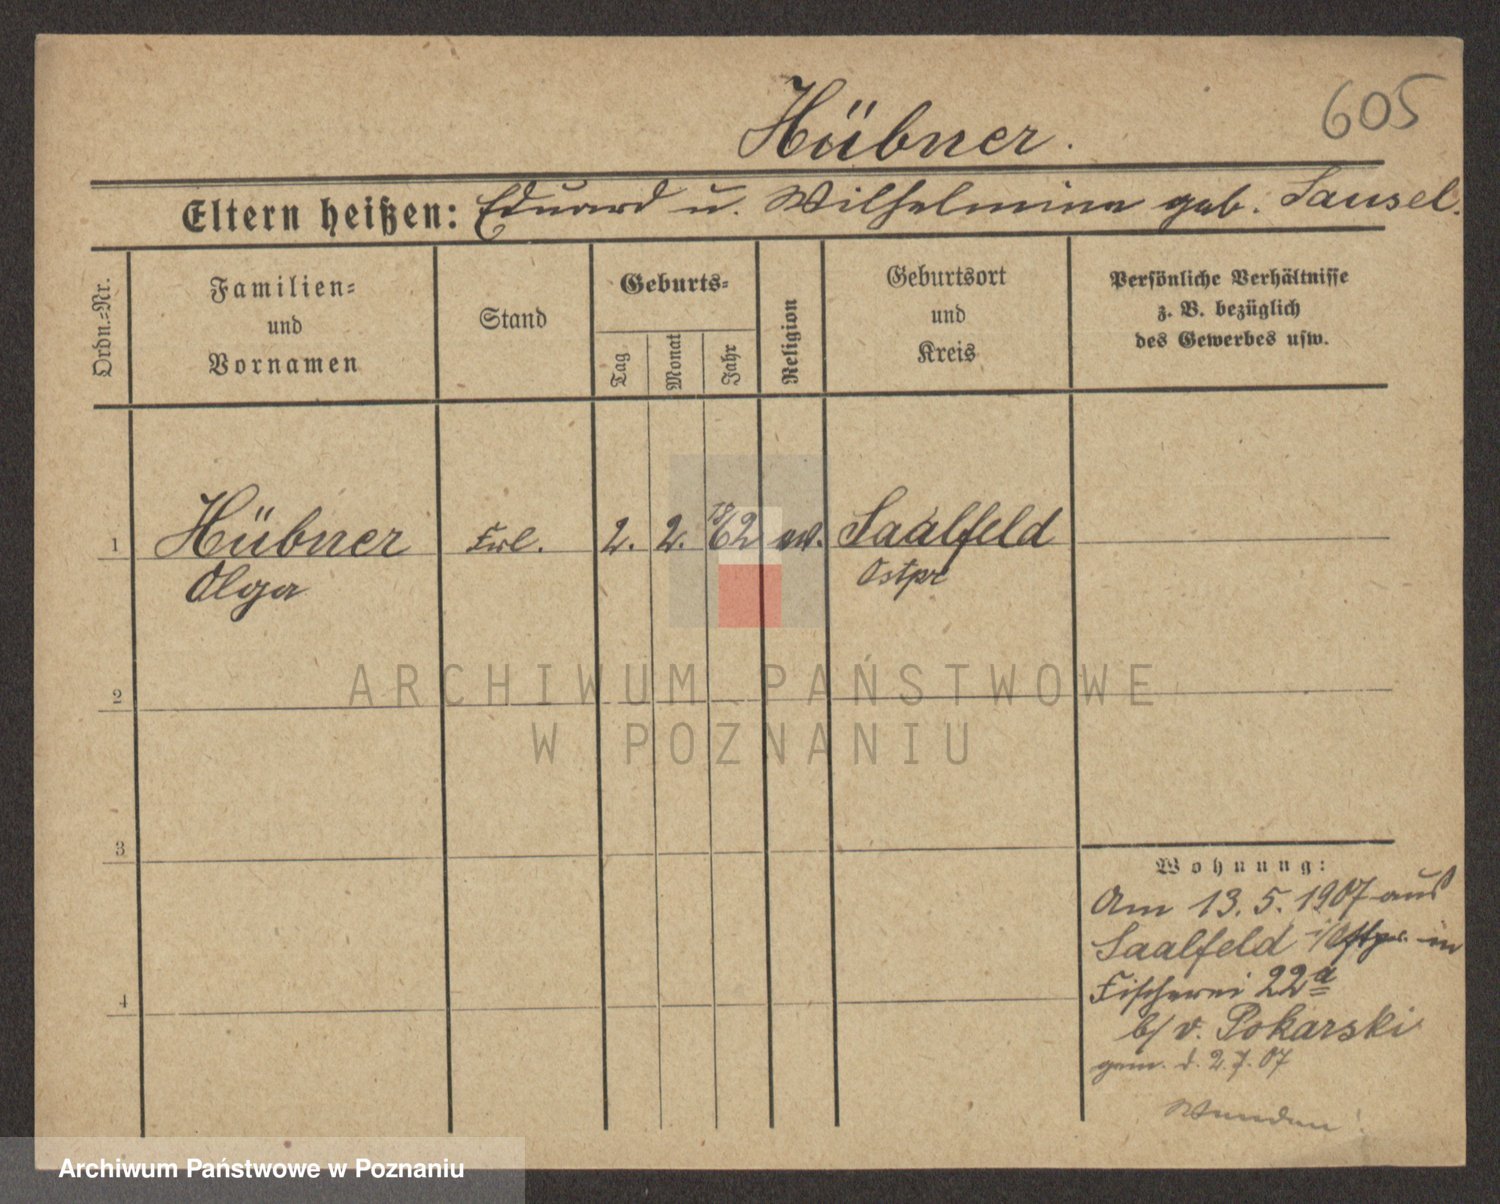 605
Hübner.
Eltern heißen: Eduard u. Wilhelmine geb. Sausel.
Ordn.=Nr.
Familien=
und
Vornamen
Stand
Geburts=
Tag
Monat
Jahr
Religion
Geburtsort
und
Kreis
Persönliche Verhältnisse
z. B. bezüglich
des Gewerbes usw.
1 Hübner Frl. 2. 2. 1862 ev. Saalfeld
Olga Ostpr
2
3
4
Wohnung:
Am 13. 5. 1907 aus
Saalfeld i/Ostpr. in
Fischerei 22a
b/ v. Pokarski
gem. d. 2.7.07
ARCHIWUM PAŃSTWOWE
W POZNANIU
Archiwum Państwowe w Poznaniu